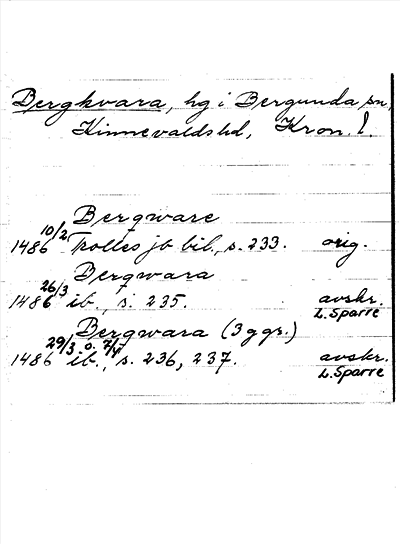 Bergkvara, hg i Bergunda sn,
Kinnevaldshd, Kron. l.
Bergware
1486 10/2 Trolles jb bil., s. 233. orig.
Bergwara
1486 26/3 ib., s. 235. avskr.
L. Sparre
Bergwara (3 ggr.)
1486 29/3 o. 7/4 ib., s. 236, 237. avskr.
L. Sparre